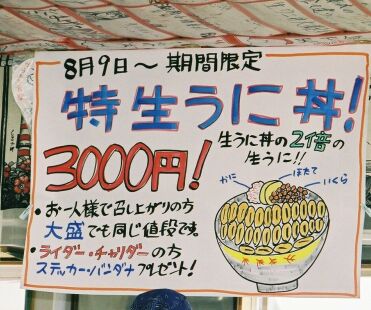 8月9日～期間限定
特生うに丼!
3000円!
生うに丼の2倍の
生うに!!
かに
ほたて
いくら
・お一人様で召し上がりの方
大盛でも同じ値段です。
・ライダー・チャリダーの方
ステッカー・バンダナプレゼント!